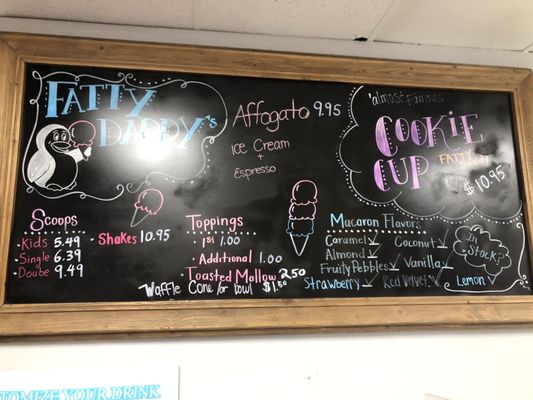 Fatty
Daddy's
Affogato 9.95
Ice Cream
+
Espresso
'almost Famous
Cookie
Cup
Fatty
$10.95
Scoops
Kids 5.49
Single 6.39
DouBe 9.49
- Shakes 10.95
Toppings
- 1st 1.00
- Additional 1.00
Toasted Mallow 2.50
Waffle Cone /or bowl $1.50
Macaron Flavors
Caramel ✓ Coconut ✓
Almond ✓
Fruity Pebbles ✓ Vanilla ✓
Strawberry ✓ Red Velvet ✓ Lemon ✓
In
Stock?
TOMIZE YOUR DRINK